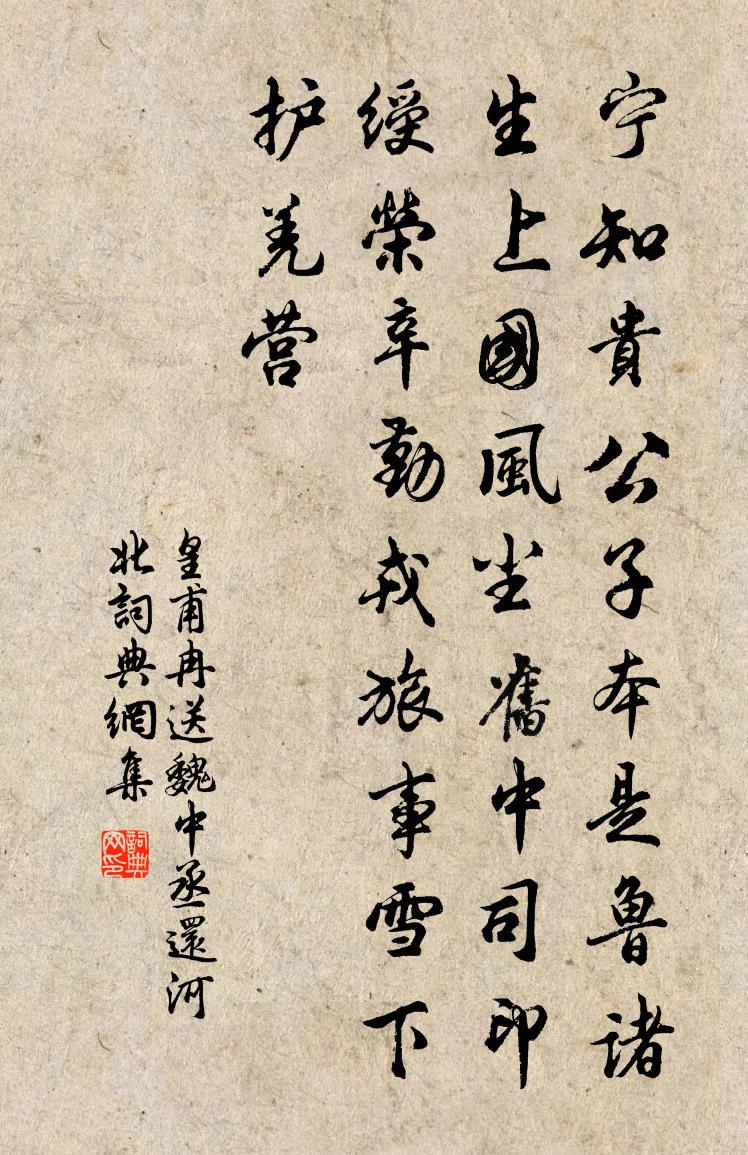 宁知貴公子本是魯诸
生上國風尘舊中司印
绶榮辛勤戎旅事雪下
护羌营
皇甫冉送魏中丞還河
北詞典網集
詞典
网印